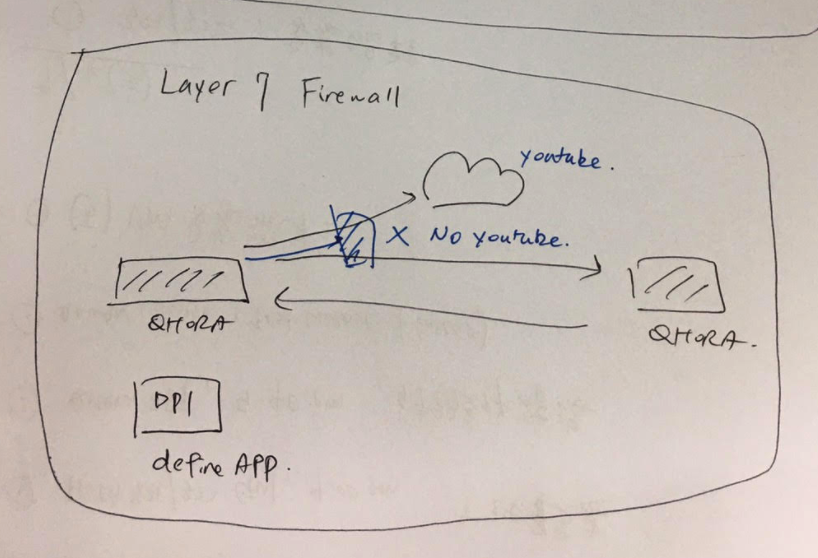 Layer 7 Firewall
youtube.
X No youtube.
QHORA
QHORA.
DPI
define APP.